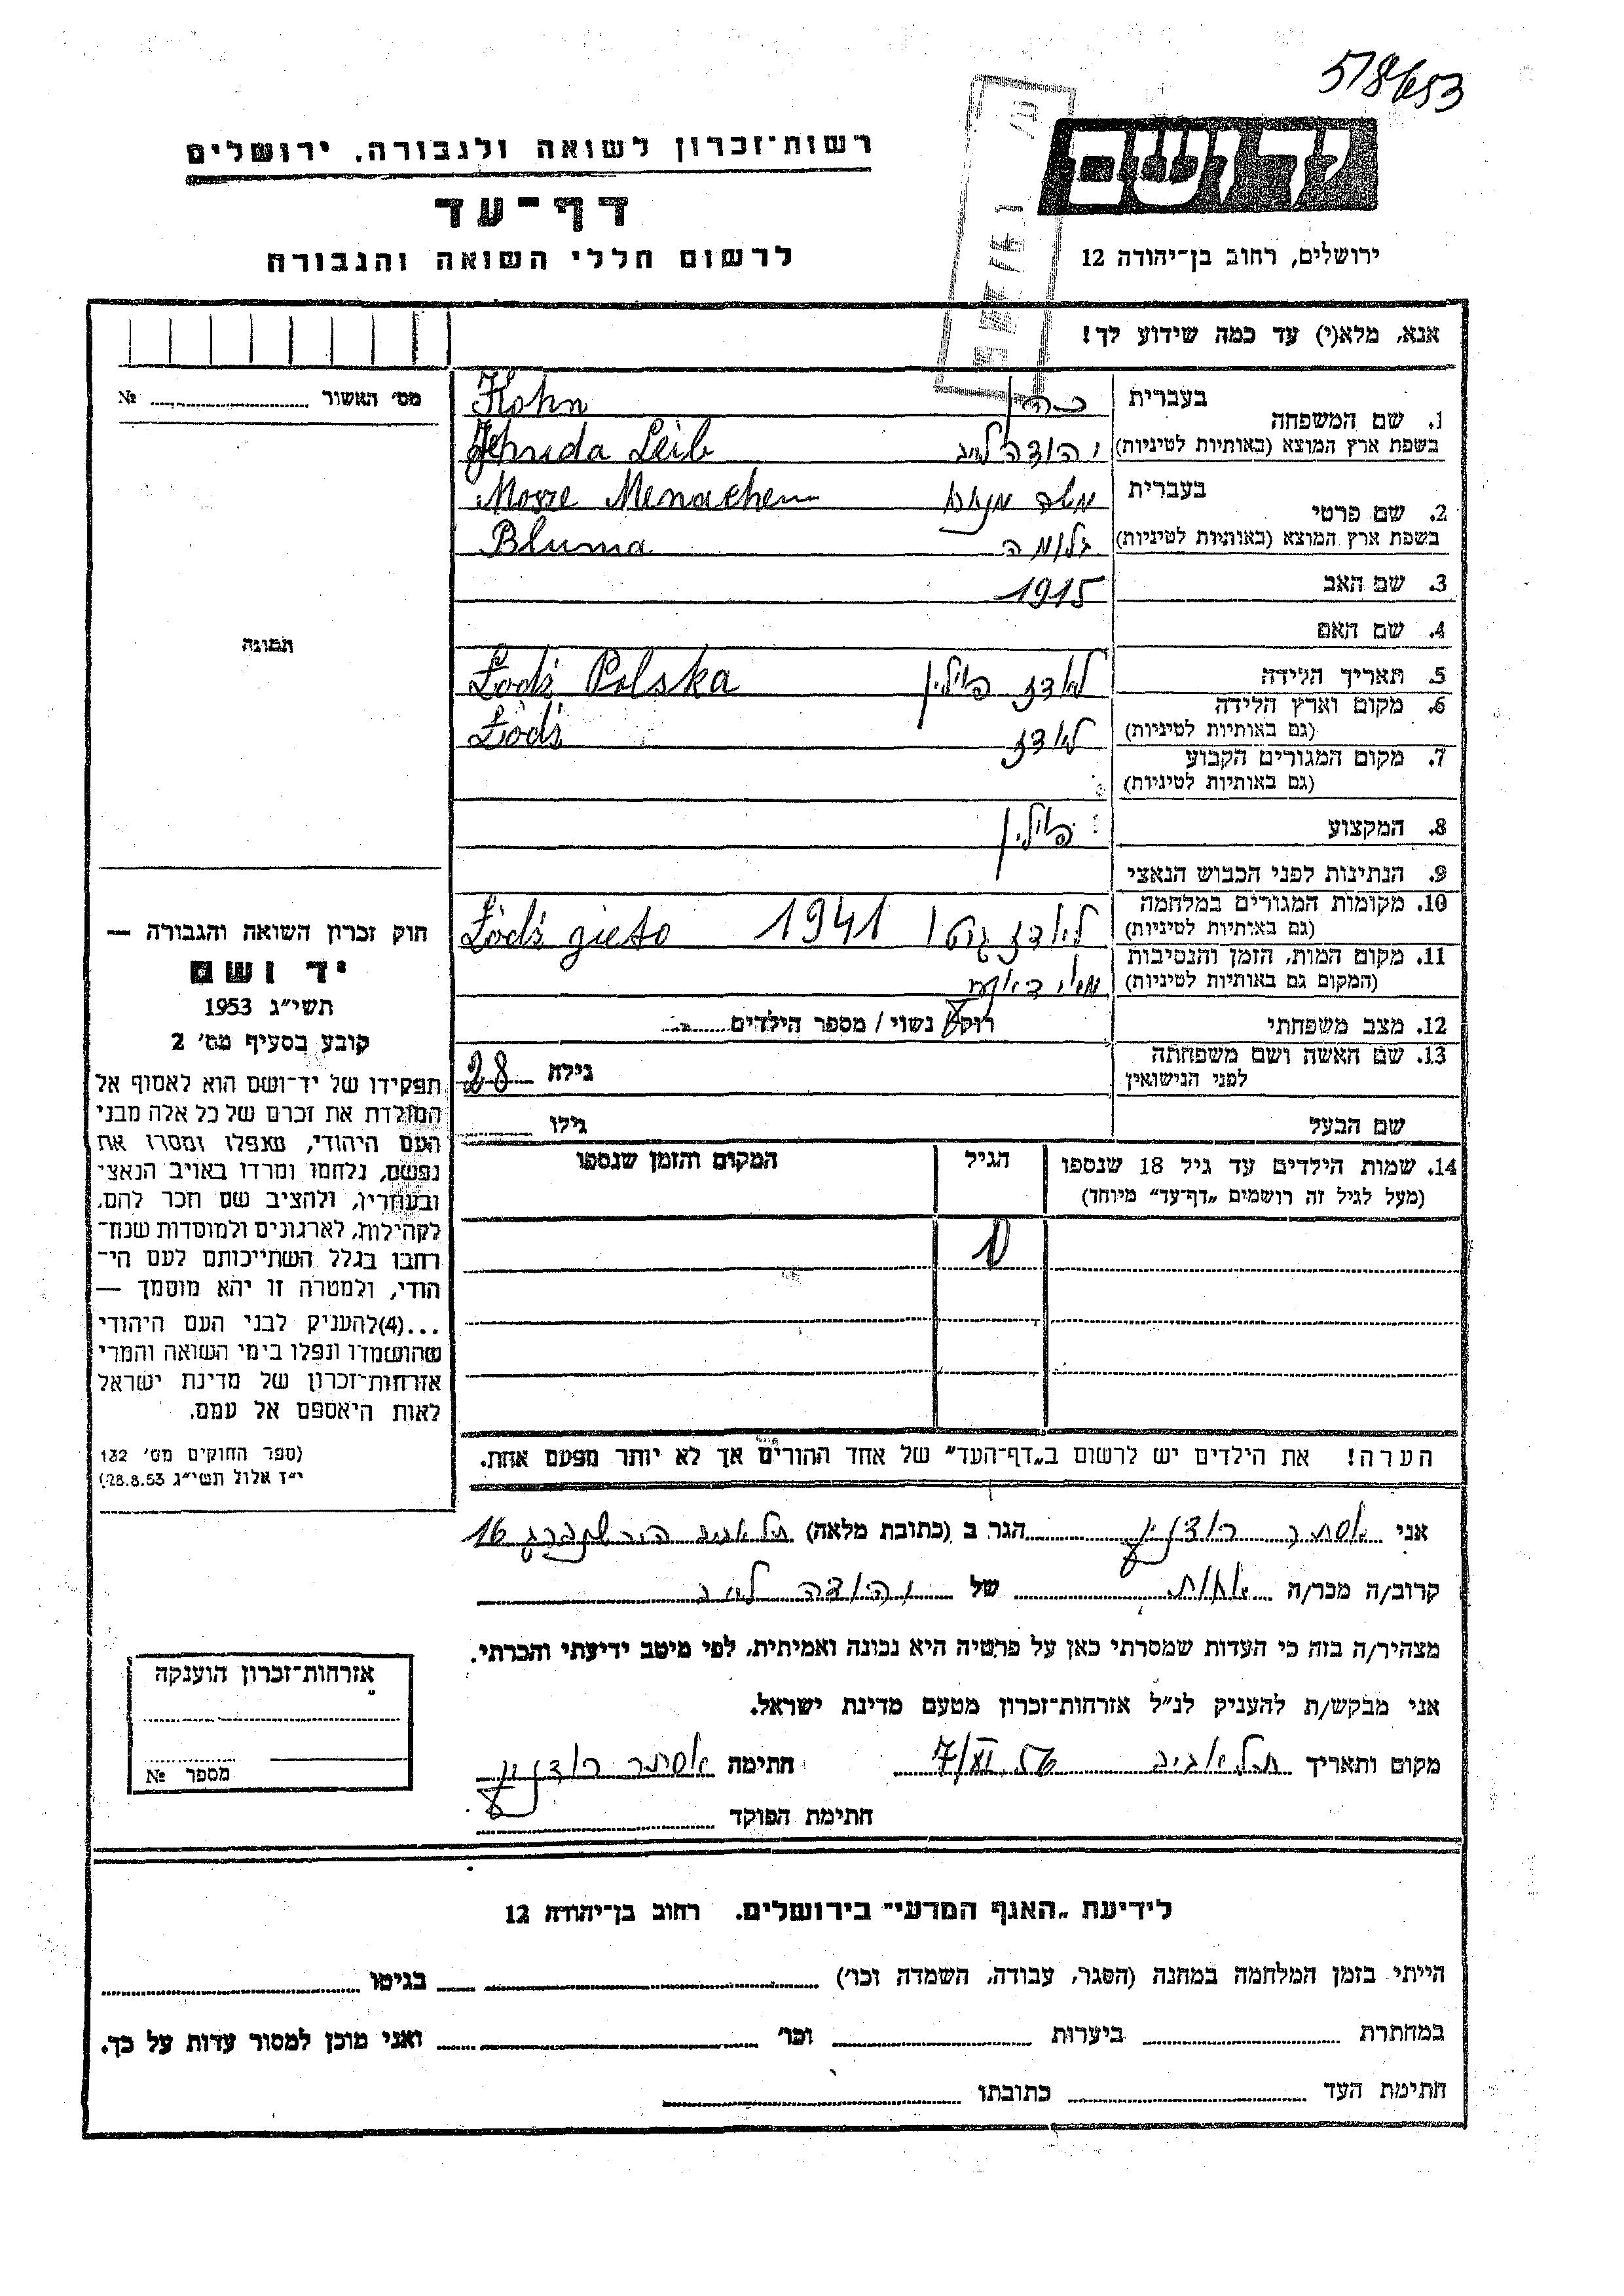 578/653
רשות־זכרון לשואה ולגבורה, ירושלים
דף־עד
לרשום חללי השואה והגבורה
יד ושם
ירושלים, רחוב בן־יהודה 12
אנא, מלא(י) עד כמה שידוע לך!
מס׳ האשור № 
1. שם המשפחה בעברית כהן Kohn
בשפת ארץ המוצא (באותיות לטיניות) יהודה לייב Jehuda Leib
2. שם פרטי בעברית משה מנחם Mosze Menachem
בשפת ארץ המוצא (באותיות לטיניות) בלומה Bluma
3. שם האב 1915
4. שם האם
5. תאריך הלידה לודז פולין Łodź Polska
6. מקום וארץ הלידה
(גם באותיות לטיניות) לודז Łodź
7. מקום המגורים הקבוע
(גם באותיות לטיניות)
8. המקצוע פולין
9. הנתינות לפני הכבוש הנאצי
10. מקומות המגורים במלחמה
(גם באותיות לטיניות) לודז גטו 1941 Łódź gieto
11. מקום המות, הזמן והנסיבות
(המקום גם באותיות לטיניות)
12. מצב משפחתי רוק/ נשוי / מספר הילדים
13. שם האשה ושם משפחתה
לפני הנישואין גילה 28
שם הבעל גילו
14. שמות הילדים עד גיל 18 שנספו הגיל המקום והזמן שנספו
(מעל לגיל זה רושמים „דף־עד” מיוחד)
תמונה
חוק זכרון השואה והגבורה —
יד ושם
תשי״ג 1953
קובע בסעיף מס׳ 2
תפקידו של יד־ושם הוא לאסוף אל
המולדת את זכרם של כל אלה מבני
העם היהודי, שנפלו ומסרו את
נפשם, נלחמו ומרדו באויב הנאצי
ובעוזריו, ולהציב שם וזכר להם,
לקהילות, לארגונים ולמוסדות שנח־
רבו בגלל השתייכותם לעם הי־
הודי, ולמטרה זו יהא מוסמך —
...(4)להעניק לבני העם היהודי
שהושמדו ונפלו בימי השואה והמרי
אזרחות־זכרון של מדינת ישראל
לאות היאספם אל עמם.
(ספר החוקים מס׳ 132
י״ז אלול תשי״ג 28.8.53)
הערה! את הילדים יש לרשום ב„דף־העד” של אחד ההורים אך לא יותר מפעם אחת.
אני אסתר הגר ב (כתובת מלאה) תל אביב הירשנברג 16
קרוב/ה מכר/ה אחות של יהודה לייב
מצהיר/ה בזה כי העדות שמסרתי כאן על פרטיה היא נכונה ואמיתית, לפי מיטב ידיעתי והכרתי.
אני מבקש/ת להעניק לנ״ל אזרחות־זכרון מטעם מדינת ישראל.
מקום ותאריך תל אביב 7/XI 56 חתימה אסתר
חתימת הפוקד
אזרחות־זכרון הוענקה
מספר №
לידיעת „האגף המדעי” בירושלים, רחוב בן־יהודה 12
הייתי בזמן המלחמה במחנה (הסגר, עבודה, השמדה וכו׳) בגיטו
במחתרת ביערות וכו׳ ואני מוכן למסור עדות על כך.
חתימת העד כתובתו